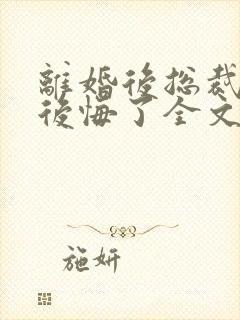 離婚後總裁
後悔了全文
施妍